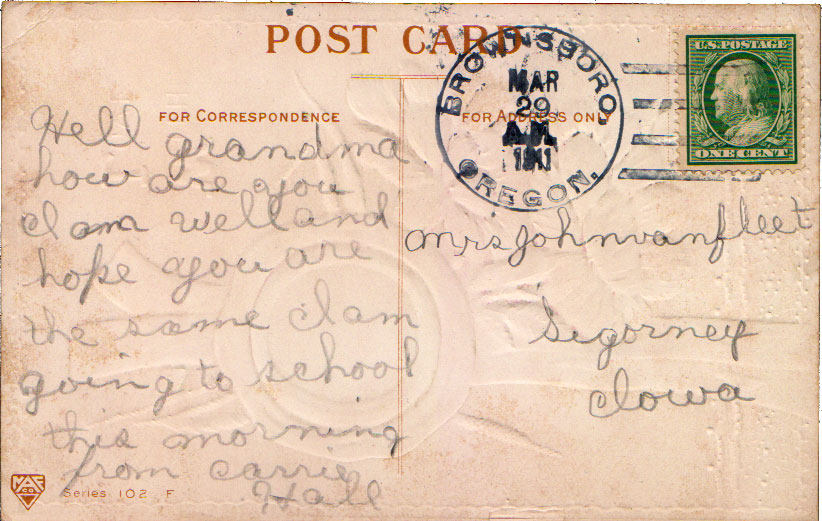 POST CARD
FOR CORRESPONDENCE
FOR ADDRESS ONLY
BROWNSBORO,
MAR
29
A.M.
1911
OREGON.
U.S. POSTAGE
ONE CENT
Hell grandma
how are you
I am well and
hope you are
the same I am
going to school
this morning
from Carrie
Hall
mrs John vanfleet
Sigorney
Iowa
Series 102 F